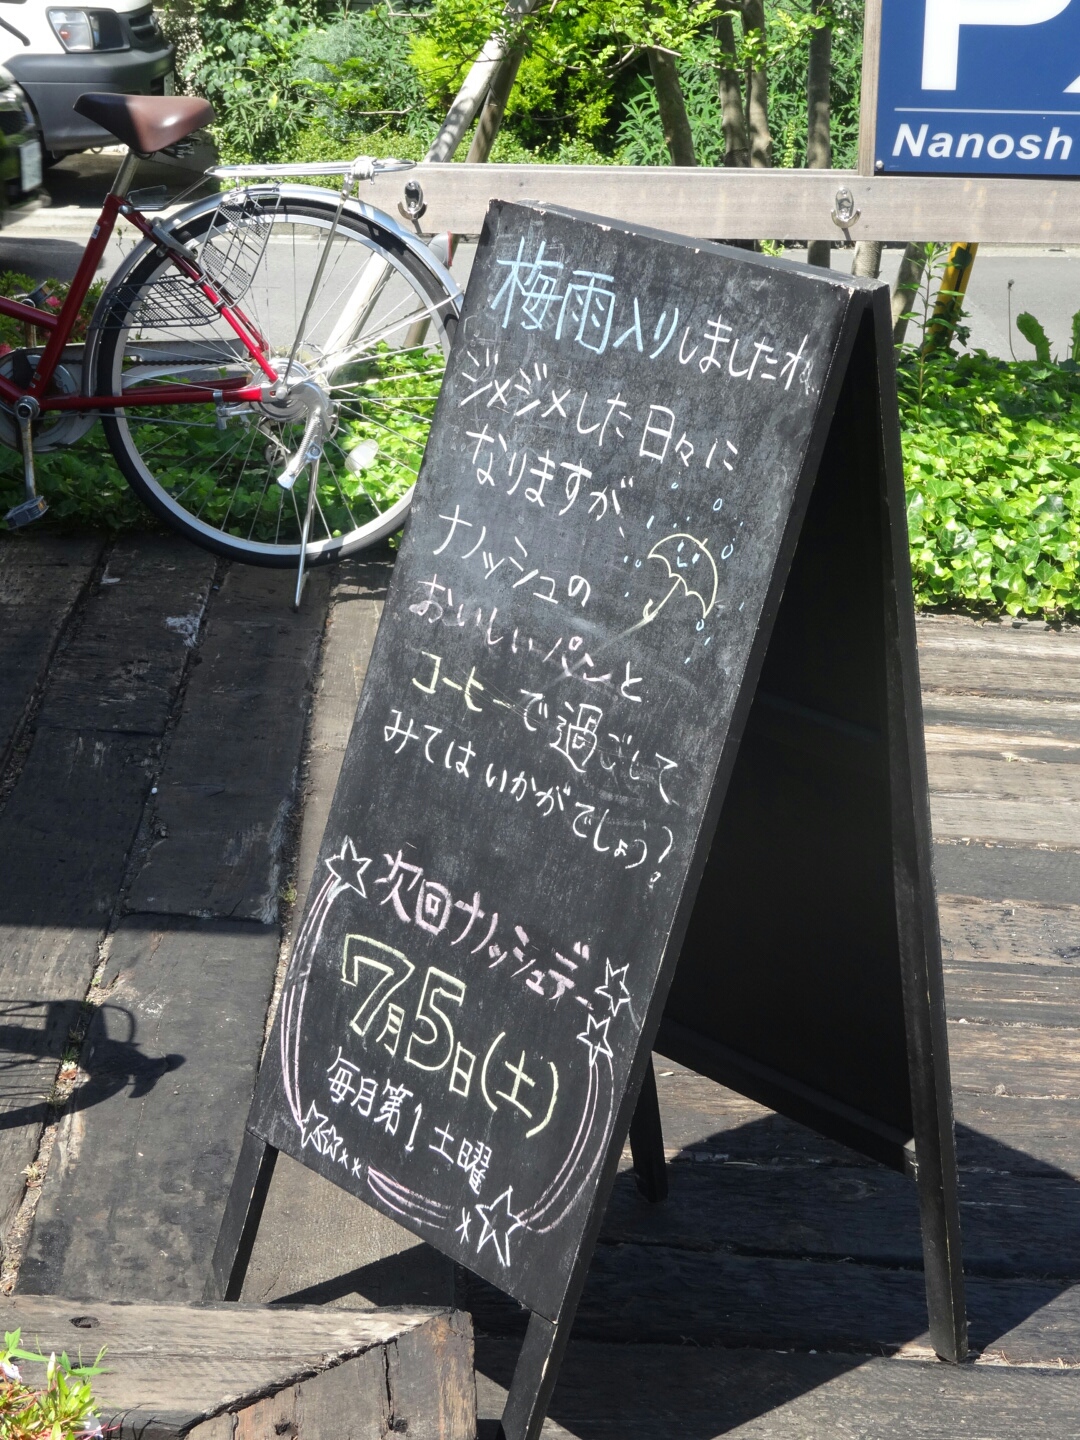 P
Nanosh
梅雨入りしましたね。
ジメジメした日々に
なりますが、
ナノッシュの
おいしいパンと
コーヒーで過ごして
みてはいかがでしょう?
次回ナノッシュデー
7月5日(土)
毎月第1土曜